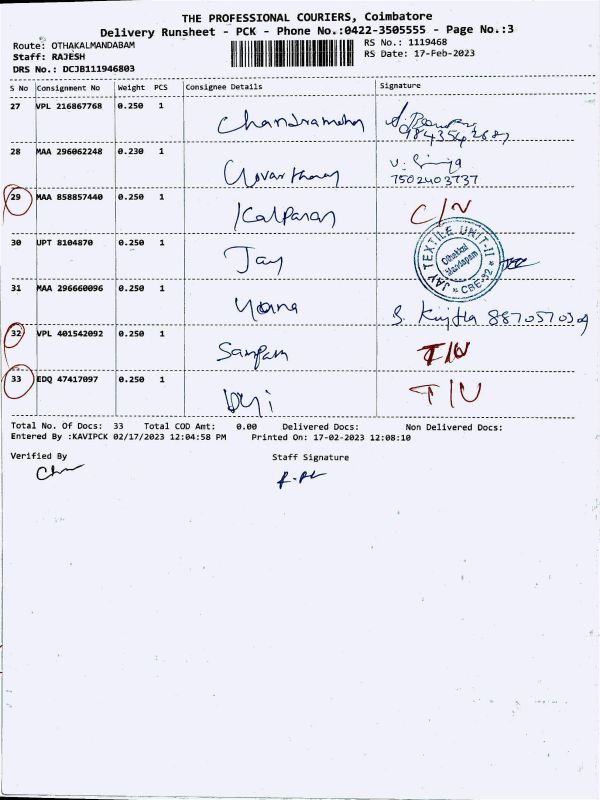 THE PROFESSIONAL COURIERS, Coimbatore
Delivery Runsheet - PCK - Phone No.:0422-3505555 - Page No.:3
Route: OTHAKALMANDABAM RS No.: 1119468
Staff: RAJESH RS Date: 17-Feb-2023
DRS No.: DCJB111946803
S No Consignment No Weight PCS Consignee Details Signature
27 VPL 216867768 0.250 1 Chandramohan
28 MAA 296062248 0.230 1
7502403737
29 MAA 858857440 0.250 1 Kalpanan C/N
30 UPT 8104870 0.250 1 Jay
JAY TEXTILE UNIT-II
Othakkal
Mandapam
CBE-32
31 MAA 296660096 0.250 1 8870570309
32 VPL 401542092 0.250 1 Sampam T/U
33 EDQ 47417097 0.250 1 T/U
Total No. Of Docs: 33 Total COD Amt: 0.00 Delivered Docs: Non Delivered Docs:
Entered By :KAVIPCK 02/17/2023 12:04:58 PM Printed On: 17-02-2023 12:08:10
Verified By Staff Signature